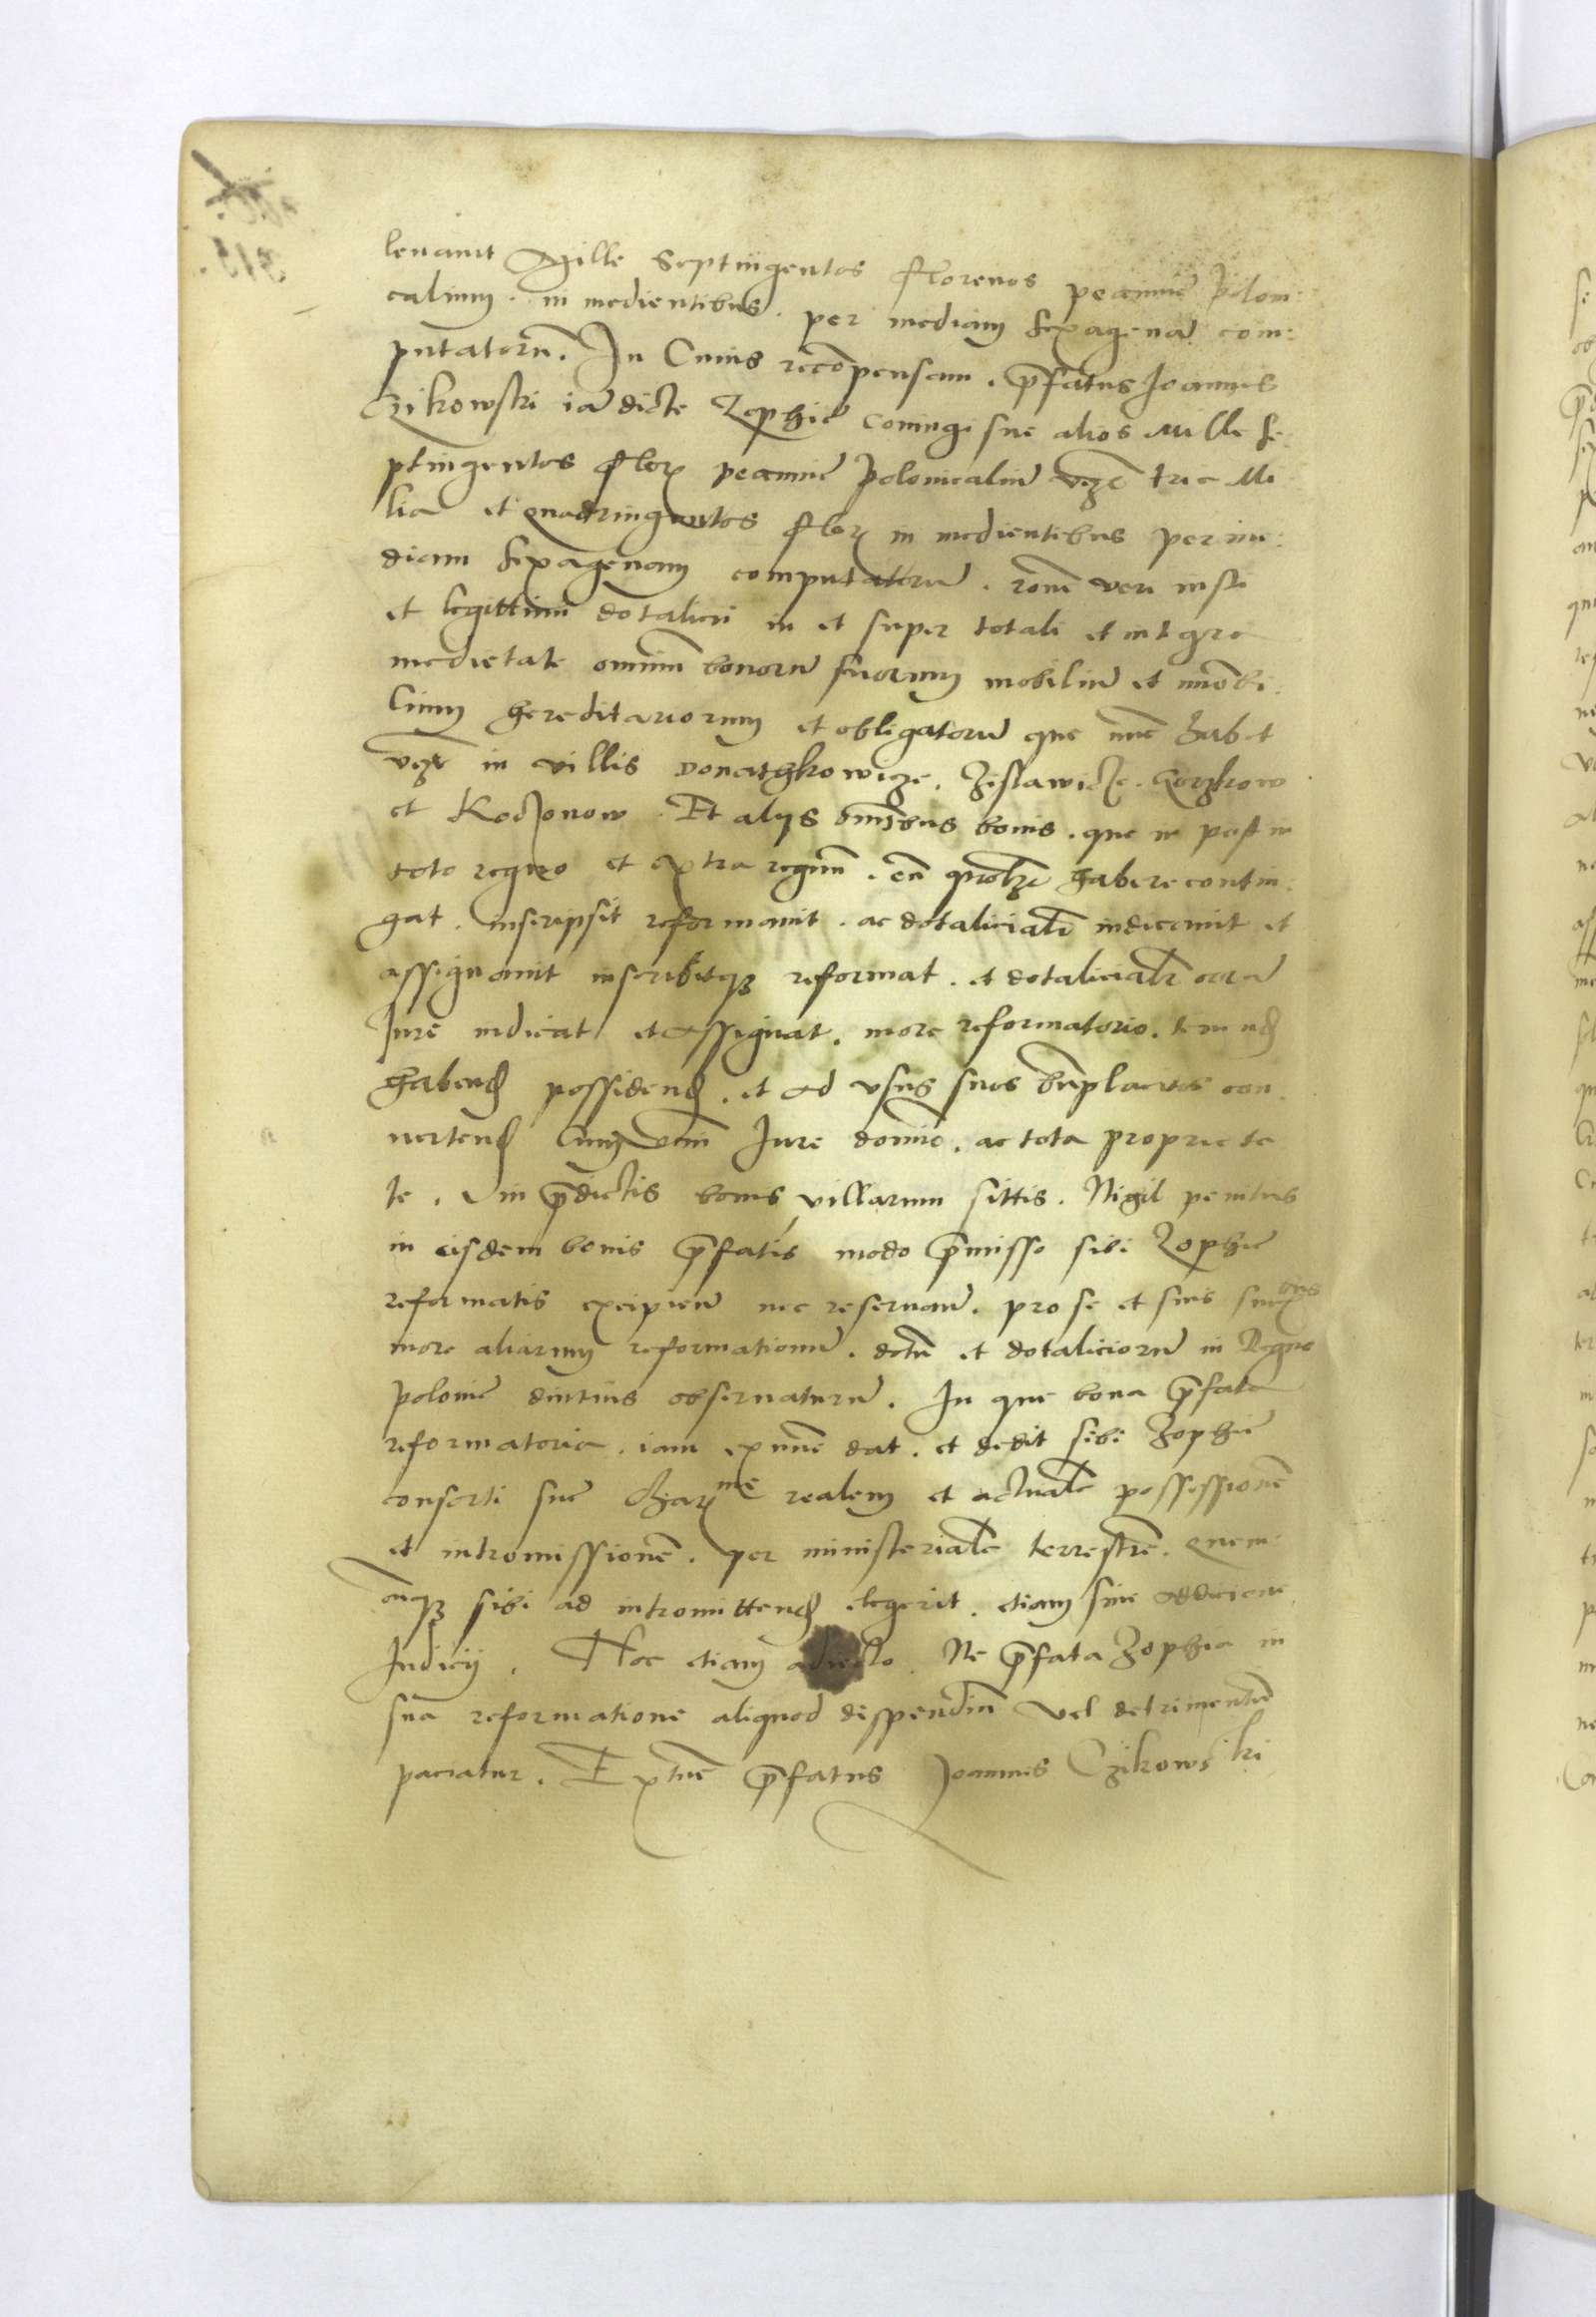 levavit Mille Septingentos florenos pecunie Poloni:
calium. in medientibus. per mediam sexagenā com:
putatorū. In Cuius recōpensam. p̄fatus Joannes
Czikowski iā dicte Zophiē coniugi sue alios Mille se:
ptingentos flor pecunie Polonicaliū vȝ tria Mi
lia et quadringentos flor in medientibus per me:
diam sexagenam computatorū. rōne veri iusti
et legittimi dotalicii in et super totali et integra
medietate omniū bonorū suorum mobiliū et im̄obi:
lium hereditariorum et obligatorū que nūc habet
vȝ in villis Donathkowicze. Zeslawicze. Gorzkow
et Koczonow. Et alijs om̄ibus bonis. que in post in
toto regno et extra regnū. eū quolȝ habere contin:
gat. inscripsit reformavit. ac dotalicialr̄ indicavit et
assignavit inscribitqȝ reformat. et dotalicialr̄ 
Jure indicat et assignat. more reformatorio. tenend
habend possidend. et ad usus suos bn̄placitos con
vertend Cum omni Jure dominio. ac tota proprieta
te. in p̄dictis bonis villarum sittis. Nihil penitus
in eisdem bonis p̄fatis modo p̄misso sibi Zophie
reformatis excipien nec reservan. pro se et suis succ
more aliarum reformationū. dotū et dotaliciorū in Regno
polonie diutius observaturū. In que bona p̄fata
reformatoria. iam ex nūc dat. et dedit sibi Zophie
consorti sue Char me realem et actualē possessionē
et intromissionē. per ministerialē terrestrē. quem
cūqȝ sibi ad intromittend elegerit. etiam sine addicione
Judicij. Hoc etiam adiecto. Ne p̄fata Zophia in
sua reformatione aliquod dispendiū vel detrimentū
paciatur. Extūc p̄fatus Joannes Czikowski